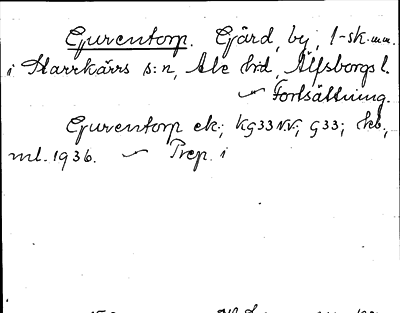 Gjurentorp. Gärd, by, 1-sk. m.m.
i Starrkärrs s:n, Ale hrd, Älfsborgs l.
~ Fortsättning.
Gjurentorp ek.; KG33NV; G33; hb.,
ml. 1936. ~ Prep. i